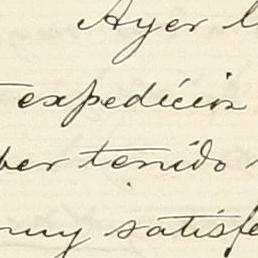 Ayer l
expedición
ber tenido
muy satisfe